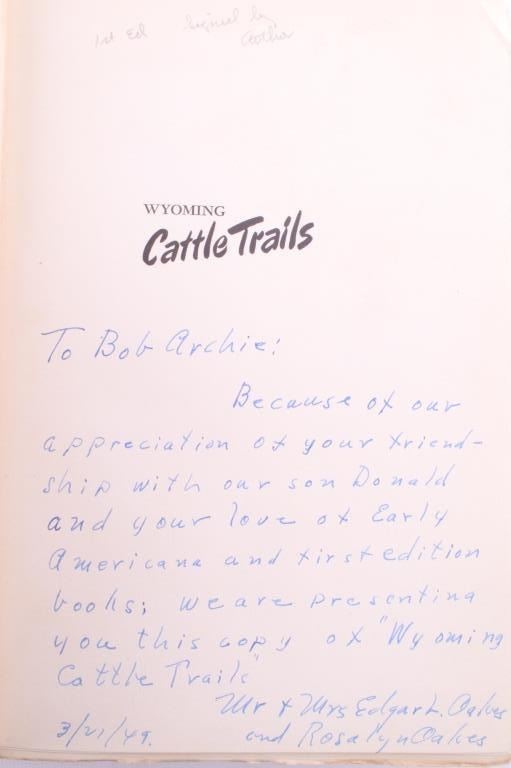 1st Ed Signed by
Author
WYOMING
Cattle Trails
To Bob Archie:
Because of our
appreciation of your friend-
ship with our son Donald
and your love of Early
Americana and first edition
books; we are presenting
you this copy of "Wyoming
Cattle Trails"
Mr & Mrs Edgar L. Oakes
3/21/49. and Rosalyn Oakes